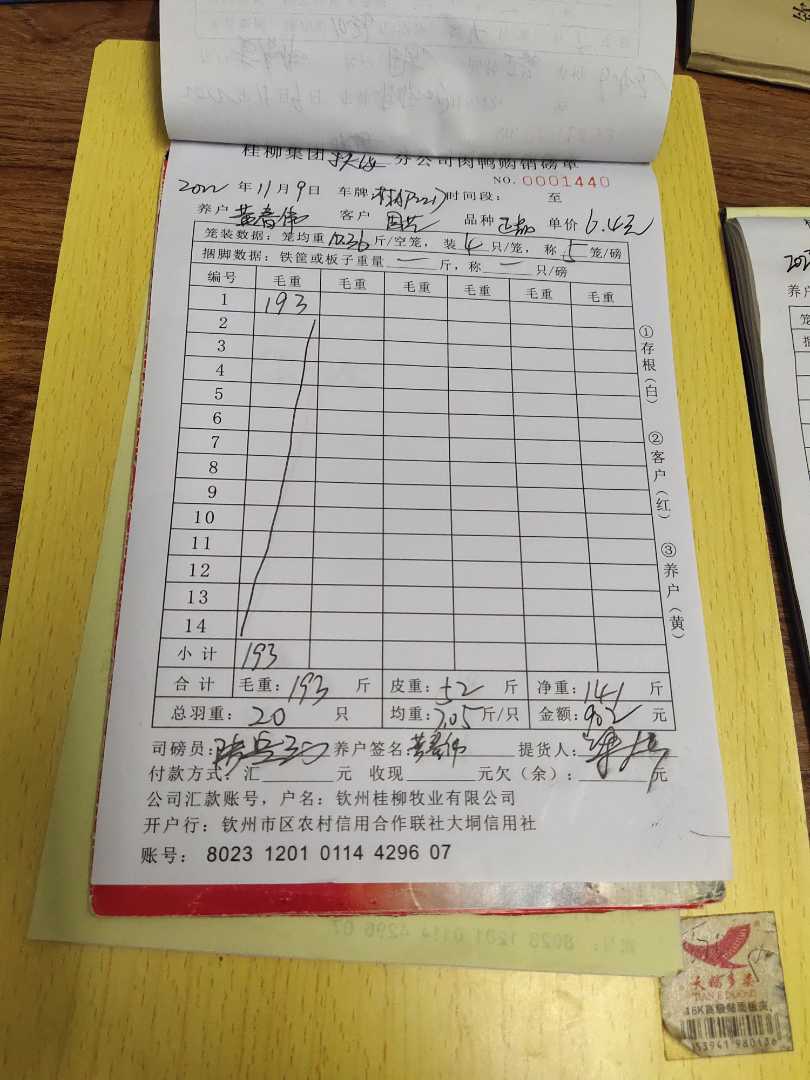 桂柳集团 分公司肉鸭购销磅单
NO. 0001440
2022年11月9日 车牌 时间段: 至
养户 黄春伟 客户 周芸 品种 单价 6.4元
笼装数据: 笼均重10.36斤/空笼, 装4只/笼, 称5笼/磅
捆脚数据: 铁筐或板子重量一斤, 称一只/磅
编号 毛重 毛重 毛重 毛重 毛重 毛重
1 193
2
3
4
5
6
7
8
9
10
11
12
13
14
小计 193
合计 毛重: 193 斤 皮重: 52 斤 净重: 141 斤
总羽重: 20 只 均重: 7.05斤/只 金额: 902元
司磅员: 养户签名 黄春伟 提货人:
付款方式: 汇 元 收现 元欠(余): 元
公司汇款账号, 户名: 钦州桂柳牧业有限公司
开户行: 钦州市区农村信用合作联社大垌信用社
账号: 8023 1201 0114 4296 07
①存根(白)
②客户(红)
③养户(黄)
天福多美
TIAN F DUOMEI